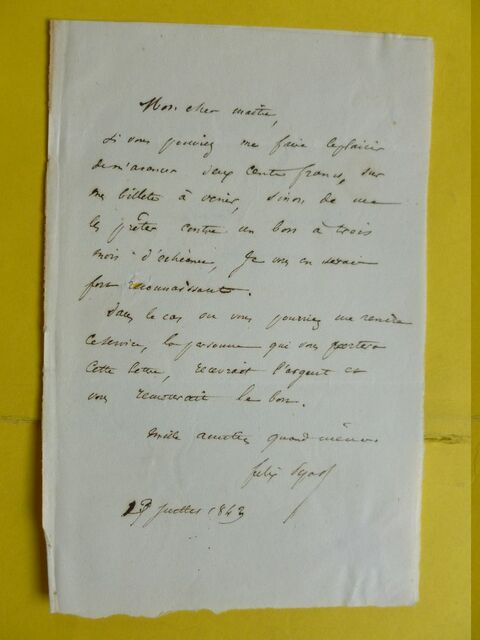 Mon cher maître,
Si vous pouviez me faire le plaisir
de m'avancer deux cents francs, sur
mes billets à venir, sinon de me
les prêter contre un bon à trois
mois d'échéance, Je vous en serais
fort reconnaissant.
Dans le cas ou vous pourriez me rendre
ce service, la personne qui vous portera
cette lettre, recevrait l'argent et
vous remettrait le bon.
mille amitiés quand même
félix
Juillet 1843